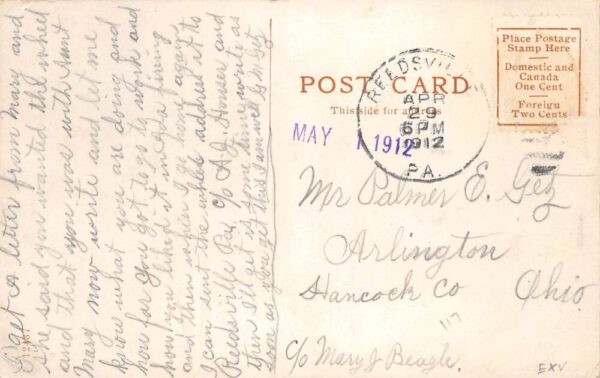 I get A letter from Mary and
she said you wanted the wheel
and that you was with Aunt
Mary now write and let me
know what you are doing and
how far you got to work and
how you liked it in
and then when I go again
I can sent the wheel address it to
Reedsville Pa, c/o A. J. Houser and
then I'll get it some time write as
soon as you get this I am well
POST CARD
This side for address
Place Postage
Stamp Here
Domestic and
Canada
One Cent
Foreign
Two Cents
REEDSVILLE
APR
29
6 PM
1912
PA.
MAY 1 1912
Mr Palmer E. Getz
Arlington
Hancock Co Ohio
c/o Mary J Beagle.
117
EXV